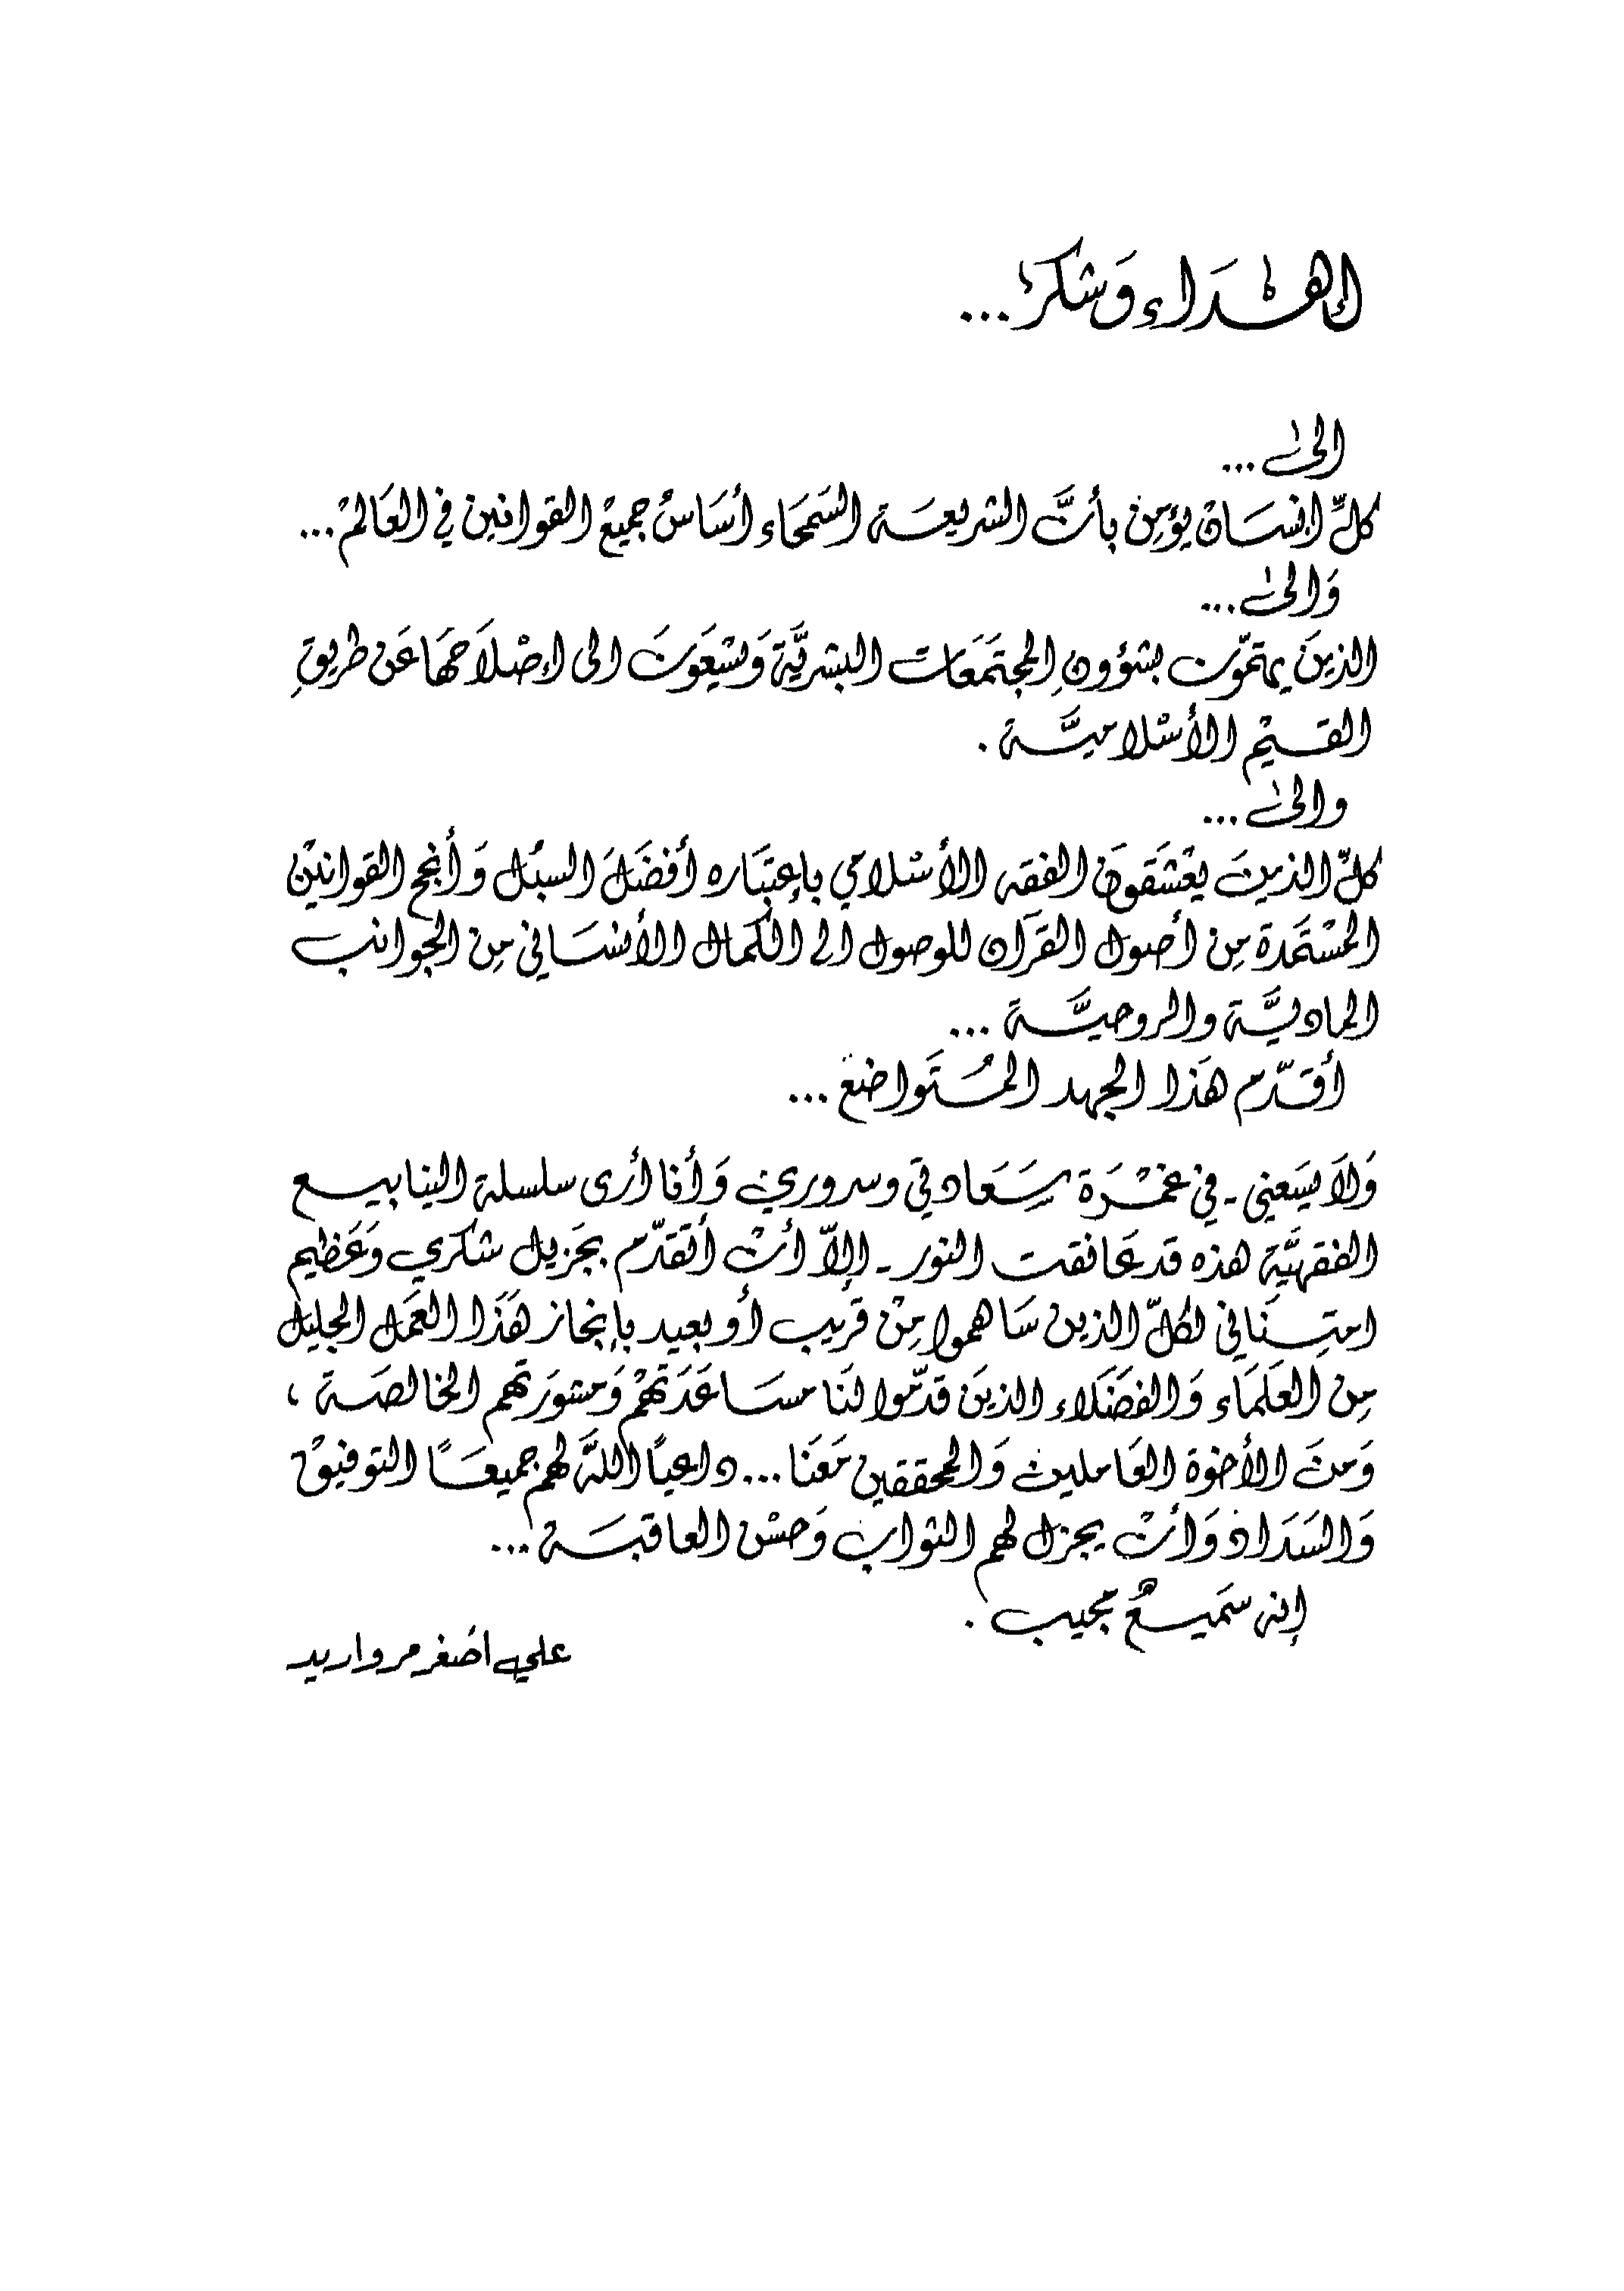 إهداء وَشكر...
الىٰ...
كلّ انسَان يؤمِن بأنَّ الشريعَة السَمحَاء أسَاسُ جميعْ القوانين في العَالمْ...
وَالىٰ...
الذينَ يهتمّون بشؤونِ المجتَمَعَات البشريَّة وَيسْعَونَ الى إصْلاَحهَا عَن طريقِ
القيمْ الأسْلاميَّة .
والىٰ...
كلّ الذينَ يعْشَقونَ الفقه الأسْلامي بإعتِبَاره أفضَلَ السبُل وَأنجح القوانيْن
المسْتَمَدة مِن أصول القرَآن للوصول الى الكمال الأنسَاني مِن الجوانب
الماديَّة والروحيَّة ...
أقدّم هَذا الجهد المُتَواضع ...
وَلاَ يسَعني - في غمْرَة سَعَادتي وسروري وَأنا أرى سلسلة الينابيع
الفقهيَّةِ هذه قد عَانقت النور - إلاّ أنْ أتقدّم بجَزيل شكري وَعَظيم
امتِنَاني لكلّ الذين سَاهموا مِنْ قريب أو بعيد بإنجاز هَذَا العَمل الجليل
مِن العلَمَاء وَالفضَلاء الذينَ قدّموا لنَا مسَاعَدَتهمْ وَمشورَتهم الخالصَة ،
وَمنَ الأخوة العَاملين وَالمحققين مَعَنا ... داعياً اللهَ لهم جميعَاً التوفيقْ
وَالسَدَاد وَأنْ يجزل لهم الثواب وَحسْن العاقبَة ...
إنه سَميعٌ مجيب .
علي اصَغر مرواريد